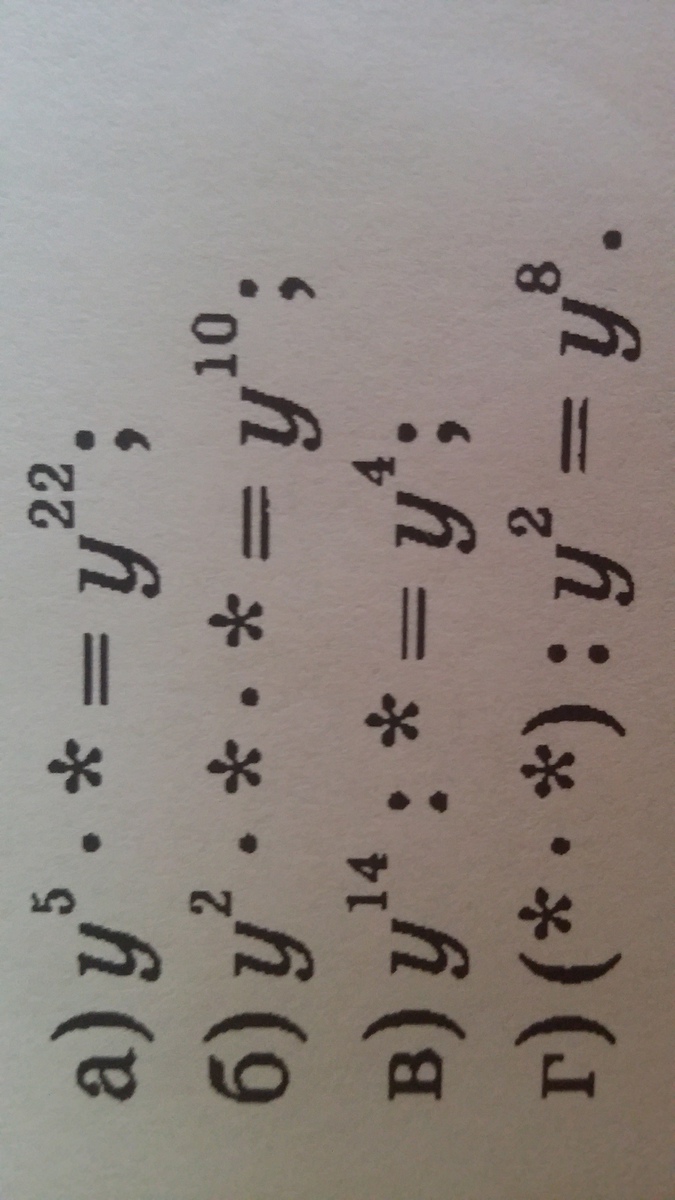 а) y⁵ · * = y²²;
б) y² · * · * = y¹⁰;
в) y¹⁴ : * = y⁴;
г) (* · *) : y² = y⁸.